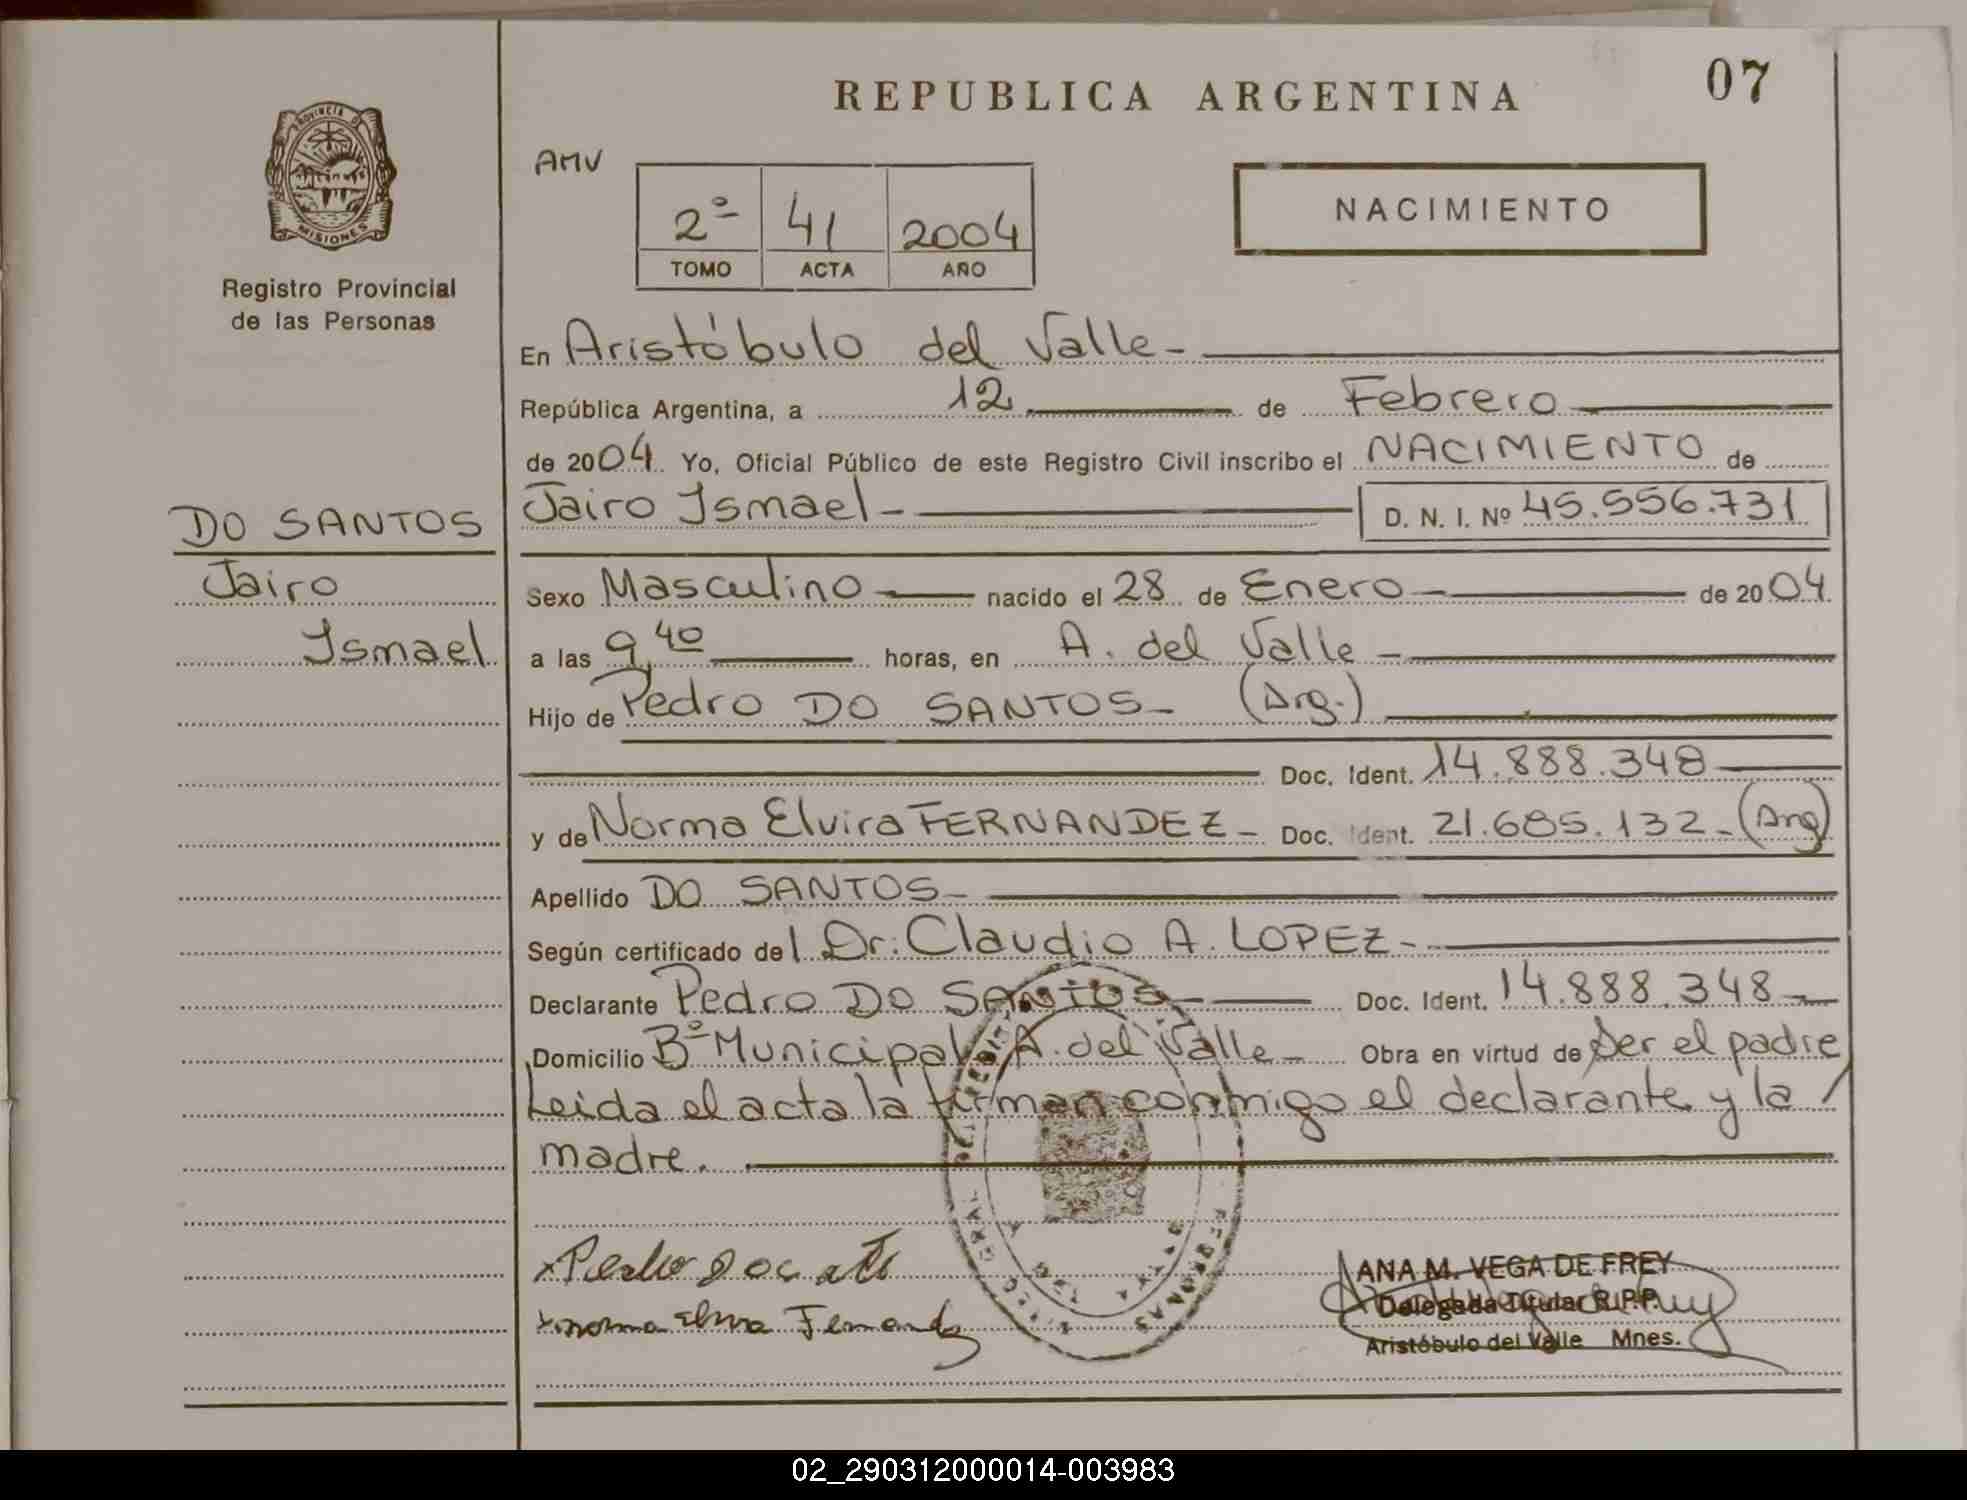 REPUBLICA ARGENTINA
07
PROVINCIA DE
MISIONES
Registro Provincial
de las Personas
AMV
2º 41 2004
TOMO ACTA AÑO
NACIMIENTO
En Aristóbulo del Valle -
República Argentina, a 12 de Febrero
de 2004. Yo, Oficial Público de este Registro Civil inscribo el NACIMIENTO de
Jairo Ismael - D. N. I. Nº 45.556.731
DO SANTOS
Jairo
Ismael
Sexo Masculino nacido el 28 de Enero - de 2004.
a las 9,40 horas, en A. del Valle -
Hijo de Pedro DO SANTOS - (Arg.)
Doc. Ident. 14.888.348
y de Norma Elvira FERNANDEZ - Doc. Ident. 21.685.132 - (Arg)
Apellido DO SANTOS -
Según certificado del Dr. Claudio A. LOPEZ -
Declarante Pedro DO SANTOS - Doc. Ident. 14.888.348 -
Domicilio Bº Municipal A. del Valle - Obra en virtud de Ser el padre
Leida el acta la firman conmigo el declarante y la /
madre.
x Pedro
x norma Elvira Fernandez
ANA M. VEGA DE FREY
Delegada Titular R.P.P.
Aristóbulo del Valle Mnes.
02_290312000014-003983